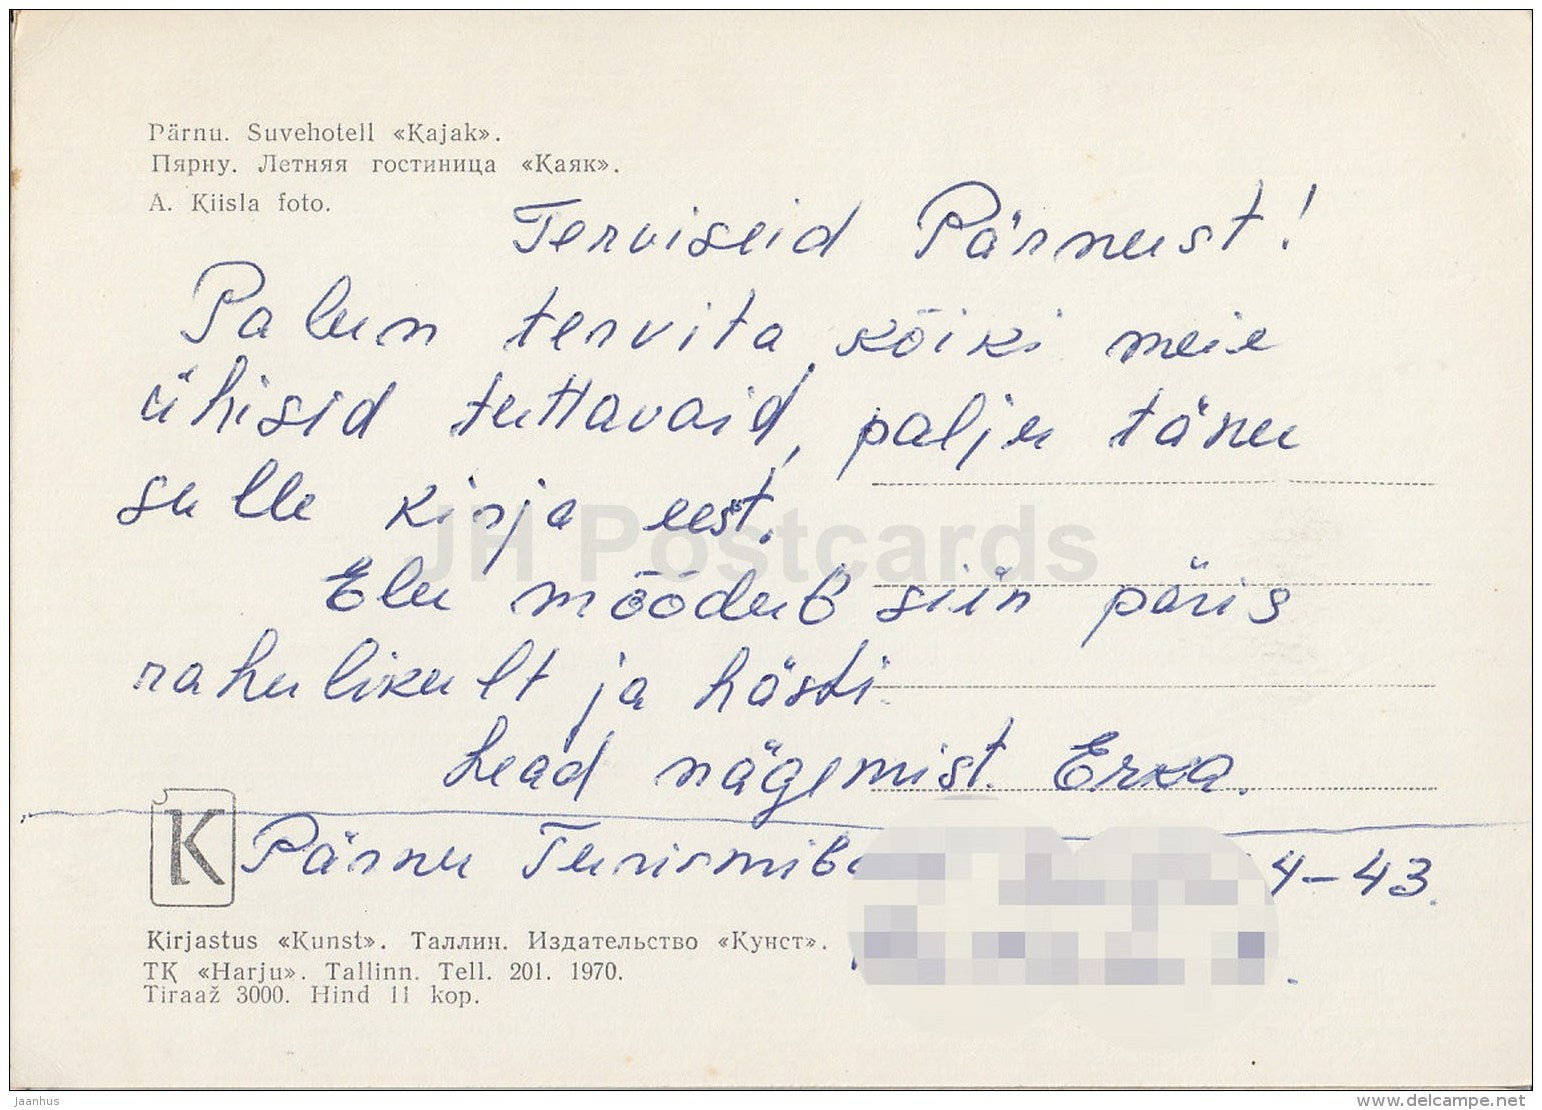 Pärnu. Suvehotell «Kajak».
Пярну. Летняя гостиница «Каяк».
A. Kiisla foto.
Terviseid Pärnust!
Palun tervita kõiki meie
ühisid tuttavaid, palju tänu
sulle kirja eest.
Elu möödub siin päris
rahulikult ja hästi.
Head nägemist. Erka.
K Pärnu 4-43.
Kirjastus «Kunst». Таллин. Издательство «Кунст».
TK «Harju». Tallinn. Tell. 201. 1970.
Tiraaž 3000. Hind 11 kop.
JH Postcards
jaanhus
www.delcampe.net